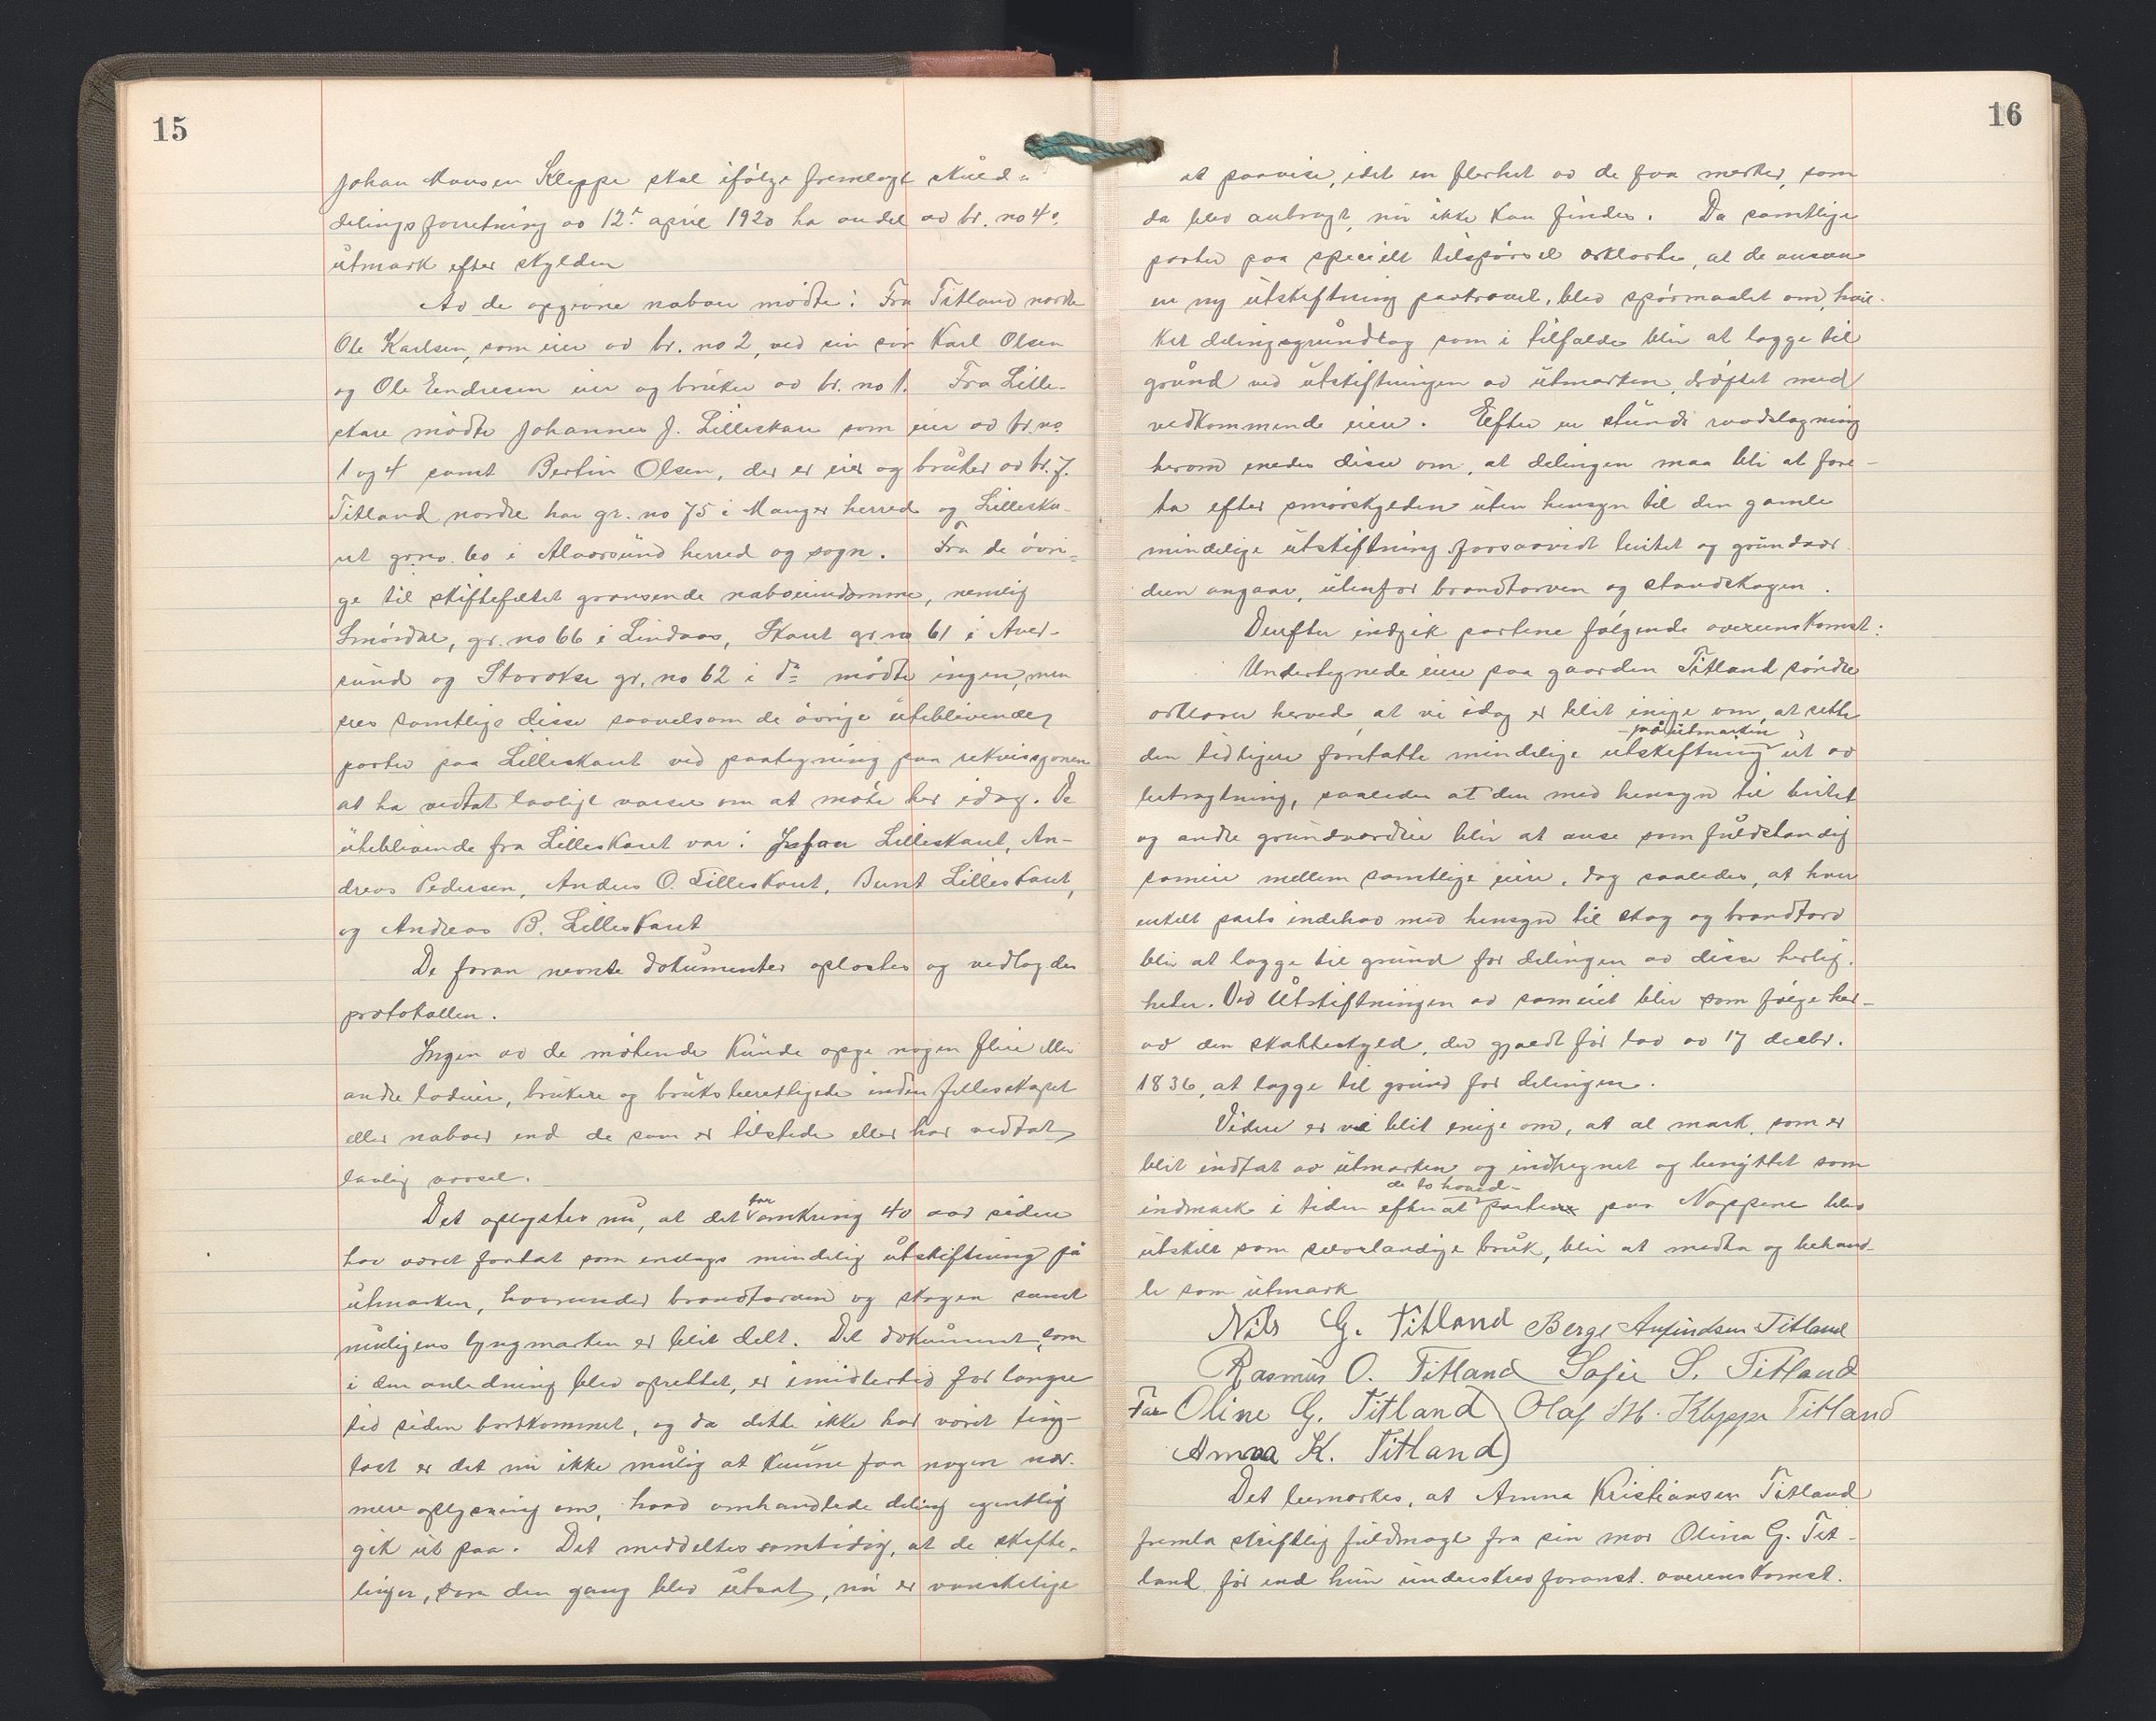 15
Johan Monsen Kleppe skal ifølge fremlagt skuld-
delingsforretning av 12te april 1920 ha andel av br. no 4s
utmark efter skylden
Av de opgivne naboer mødte: Fra Titland nordre
Ole Karlsen, som eier av br. no 2, ved sin søn Karl Olsen
og Ole Eendresen eier og bruker av br. no 1. Fra Lille-
skare mødte Johannes J. Lilleskare som eier av br. no
1 og 4 samt Bertin Olsen, der er eier og bruker av br. 7.
Titland nordre har gr. no 75 i Manger herred og Lilleska-
ret gr. no. 60 i Alversund herred og sogn. Fra de øvri-
ge til skiftefeltet grænsende naboeiendomme, nemlig
Smørdal, gr. no 66 i Lindaas, Skaut gr. no 61 i Alver-
sund og Storokse gr. no 62 i do mødte ingen, men
sees samtlige disse saavelsom de øvrige uteblivende
parter paa Lilleskaret ved paategning paa rekvisisjonen
at ha vedtat lovlig varsel om at møte her idag. De
uteblivende fra Lilleskaret var: Lilleskaret, An-
dreas Pedersen, Anders O. Lilleskaret, Bernt Lilleskaret,
og Andreas B. Lilleskaret
De foran nevnte dokumenter oplæstes og vedlagdes
protokollen.
Ingen av de møtende kunde opge nogen flere eller
andre lodeier, brukere og bruksberettigede inden fellesskapet
eller naboer end de som er tilstede eller har vedtat
lovlig varsel.
Det oplystes nu, at det for omkring 40 aar siden
har været foretat som endags mindelig utskiftning på
utmarken, hvorunder brandtorven og skogen samt
muligens lyngmarken er blit delt. Det dokument, som
i den anledning blev oprettet, er imidlertid for længre
tid siden bortkommet, og da dette ikke har været ting-
læst er det nu ikke mulig at kunne faa nogen nær-
mere oplysning om, hvad omhandlede deling egentlig
gik ut paa. Det meddeltes samtidig, at de skifte-
linjer, som den gang blev utsat, nu er vanskelige
16
at paavise, idet en flerhet av de faa merker, som
da blev anbragt, nu ikke kan findes. Da samtlige
parter paa specielt tilspørsel erklærte, at de ansaa
en ny utskiftning paakrævet, blev spørsmaalet om, hvil-
ket delingsgrundlag som i tilfælde blir at lægge til
grund ved utskiftningen av utmarken, drøftet med
vedkommende eiere. Efter en stunds raadslagning
herom enedes disse om, at delingen maa bli at fore-
ta efter smørskylden uten hensyn til den gamle
mindelige utskiftning forsaavidt beitet og grundvær-
dien angaar, utenfor brandtorven og standskogen.
Derefter indgik partene følgende overenskomst:
Undertegnede eiere paa gaarden Titland søndre
erklærer herved, at vi idag er blit enige om, at sette
den tidligere foretatte mindelige utskiftning på utmarken ut av
betragtning, saaledes at den med hensyn til beitet
og andre grundværdier blir at anse som fuldstændig
sameie mellem samtlige eiere, dog saaledes, at hver
enkelt parts indehav med hensyn til skog og brandtorv
blir at lægge til grund for delingen av disse herlig-
heter. Ved Utskiftningen av sameiet blir som følge her-
av den skatteskyld, der gjaldt før lov av 17 decbr.
1836, at lægge til grund for delingen.
Videre er vi blit enige om, at al mark, som er
blit indtat av utmarken og indhegnet og benyttet som
indmark i tiden efter at de to hoved- parter paa Nappene blev
utskilt som selvstændige bruk, blir at medta og behand-
le som utmark
Nils G. Titland Berge Anfindsen Titland
Rasmus O. Titland Sofie S. Titland
For Oline G. Titland) Olaf M. Kleppe Titland
Anna K. Titland)
Det bemerkes, at Anna Kristiansen Titland
fremla skriftlig fuldmagt fra sin mor Olina G. Tit-
land før end hun underskrev foranst. overenskomst.